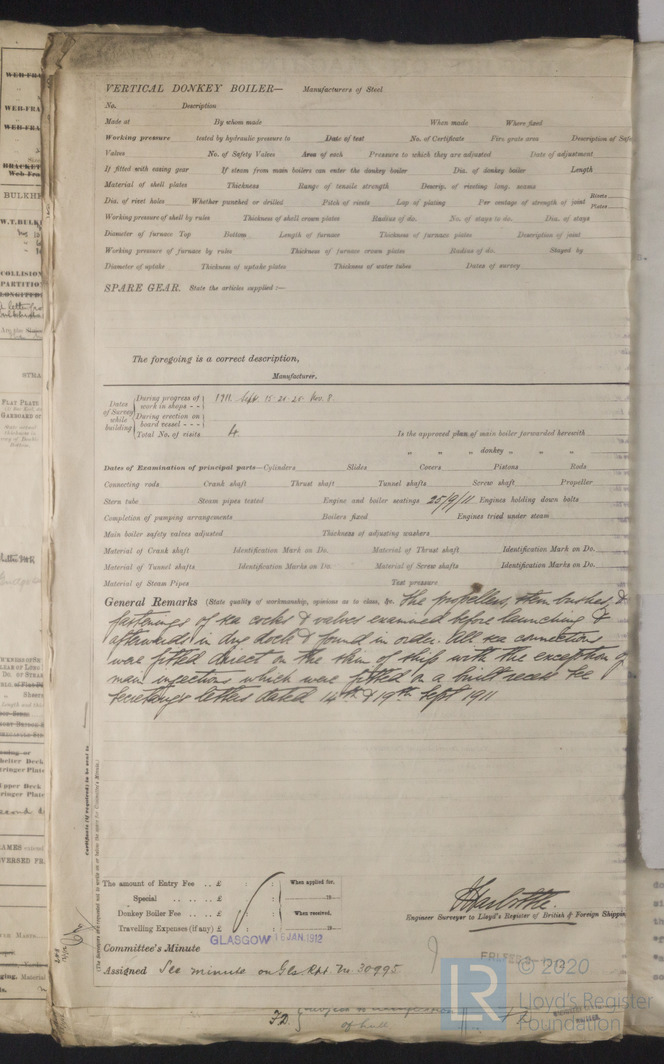 VERTICAL DONKEY BOILER— Manufacturers of Steel
No. Description
Made at By whom made When made Where fixed
Working pressure tested by hydraulic pressure to Date of test No. of Certificate Fire grate area Description of Safe
Valves No. of Safety Valves Area of each Pressure to which they are adjusted Date of adjustment
If fitted with easing gear If steam from main boilers can enter the donkey boiler Dia. of donkey boiler Length
Material of shell plates Thickness Range of tensile strength Descrip. of riveting long. seams
Dia. of rivet holes Whether punched or drilled Pitch of rivets Lap of plating Per centage of strength of joint Rivets Plates
Working pressure of shell by rules Thickness of shell crown plates Radius of do. No. of stays to do. Dia. of stays
Diameter of furnace Top Bottom Length of furnace Thickness of furnace plates Description of joint
Working pressure of furnace by rules Thickness of furnace crown plates Radius of do. Stayed by
Diameter of uptake Thickness of uptake plates Thickness of water tubes Dates of survey
SPARE GEAR. State the articles supplied:—
The foregoing is a correct description,
Manufacturer.
Dates of Survey while building
During progress of work in shops - - 1911. Sept. 15. 21. 25. Nov. 8.
During erection on board vessel - - -
Total No. of visits 4. Is the approved plan of main boiler forwarded herewith
" " " donkey " " "
Dates of Examination of principal parts—Cylinders Slides Covers Pistons Rods
Connecting rods Crank shaft Thrust shaft Tunnel shafts Screw shaft Propeller
Stern tube Steam pipes tested Engine and boiler seatings 25/9/11 Engines holding down bolts
Completion of pumping arrangements Boilers fixed Engines tried under steam
Main boiler safety valves adjusted Thickness of adjusting washers
Material of Crank shaft Identification Mark on Do. Material of Thrust shaft Identification Mark on Do.
Material of Tunnel shafts Identification Marks on Do. Material of Screw shafts Identification Marks on Do.
Material of Steam Pipes Test pressure
General Remarks (State quality of workmanship, opinions as to class, &c. The propellers, stern bushes, &
fastenings of sea cocks & valves examined before launching &
afterwards in dry dock & found in order. All sea connections
were fitted direct on the skin of ship with the exception of
main injections which were fitted on a built recess see
Secretary's letters dated 14th & 19th Sept 1911
Certificate (if required) to be sent to
(The Surveyors are requested not to write on or below the space for Committee's Minute.)
The amount of Entry Fee .. £ : : When applied for.
Special .. .. .. £ : : 19
Donkey Boiler Fee .. .. £ : : When received.
Travelling Expenses (if any) £ : : 19
Engineer Surveyor to Lloyd's Register of British & Foreign Shippin
Committee's Minute GLASGOW 16 JAN. 1912
Assigned See minute on Gls Rpt No 30995
FRI. FEB
© 2020
LR Lloyd's Register Foundation
of hull